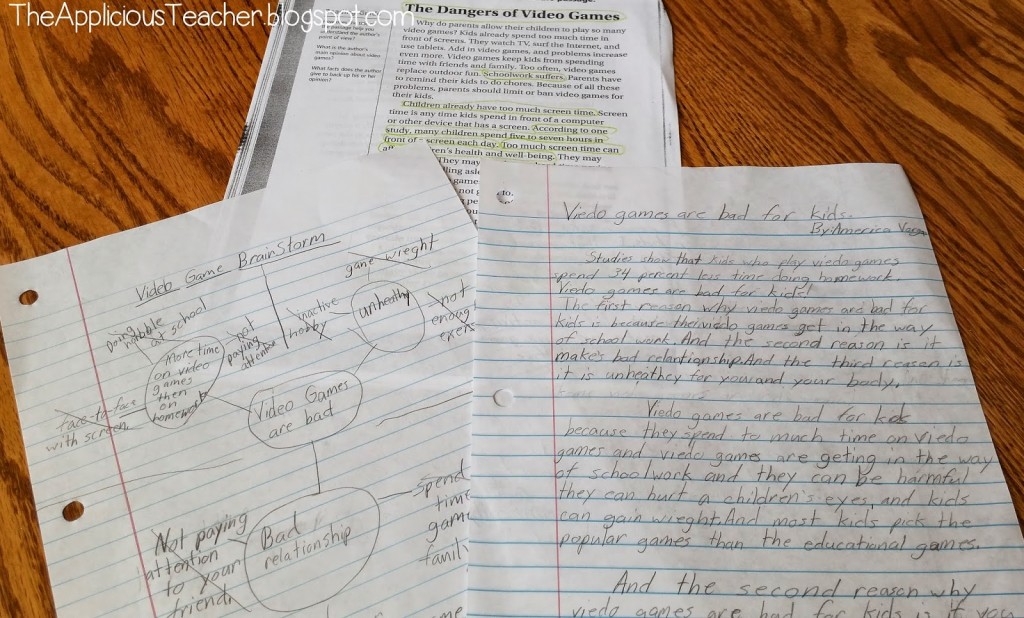 TheAppliciousTeacher.blogspot.com
passage.
The Dangers of Video Games
understand the author's
point of view?
What is the author's
main opinion about video
games?
What facts does the author
give to back up his or her
opinion?
Why do parents allow their children to play so many
video games? Kids already spend too much time in
front of screens. They watch TV, surf the Internet, and
use tablets. Add in video games, and problems increase
even more. Video games keep kids from spending
time with friends and family. Too often, video games
replace outdoor fun. Schoolwork suffers. Parents have
to remind their kids to do chores. Because of all these
problems, parents should limit or ban video games for
their kids.
Children already have too much screen time. Screen
time is any time kids spend in front of a computer
or other device that has a screen. According to one
study, many children spend five to seven hours in
front of screen each day. Too much screen time can
health and well-being. They may
They may
game
not
to.
Video Game BrainStorm
Doing
at school
not
paying
attention
More time
on video
games
then
on
homework
face-to-face
with screen.
inactive
hobby
gane wreight
unhealthy
not
enoug
exers
Video Games
are bad
Bad
relationship
Not paying
attention
to your
friend
spend
time
gam
famil
Viedo games are bad for kids.
By:America Vega
Studies show that kids who play viedo games
spend 34 percent less time doing homework
Viedo games are bad for kids!
The first reason why viedo games are bad for
kids is because the viedo games get in the way
of school work. And the second reason is it
makes bad relantionship. And the third reason is
it is unheathey for you and your body.
Viedo games are bad for kids
because they spend to much time on viedo
games and viedo games are geting in the way
of schoolwork and they can be harmful
they can hurt a children's eyes, and kids
can gain wrieght. And most kids pick the
popular games than the educational games.
And the second reason why
viedo games are bad for kids is if you